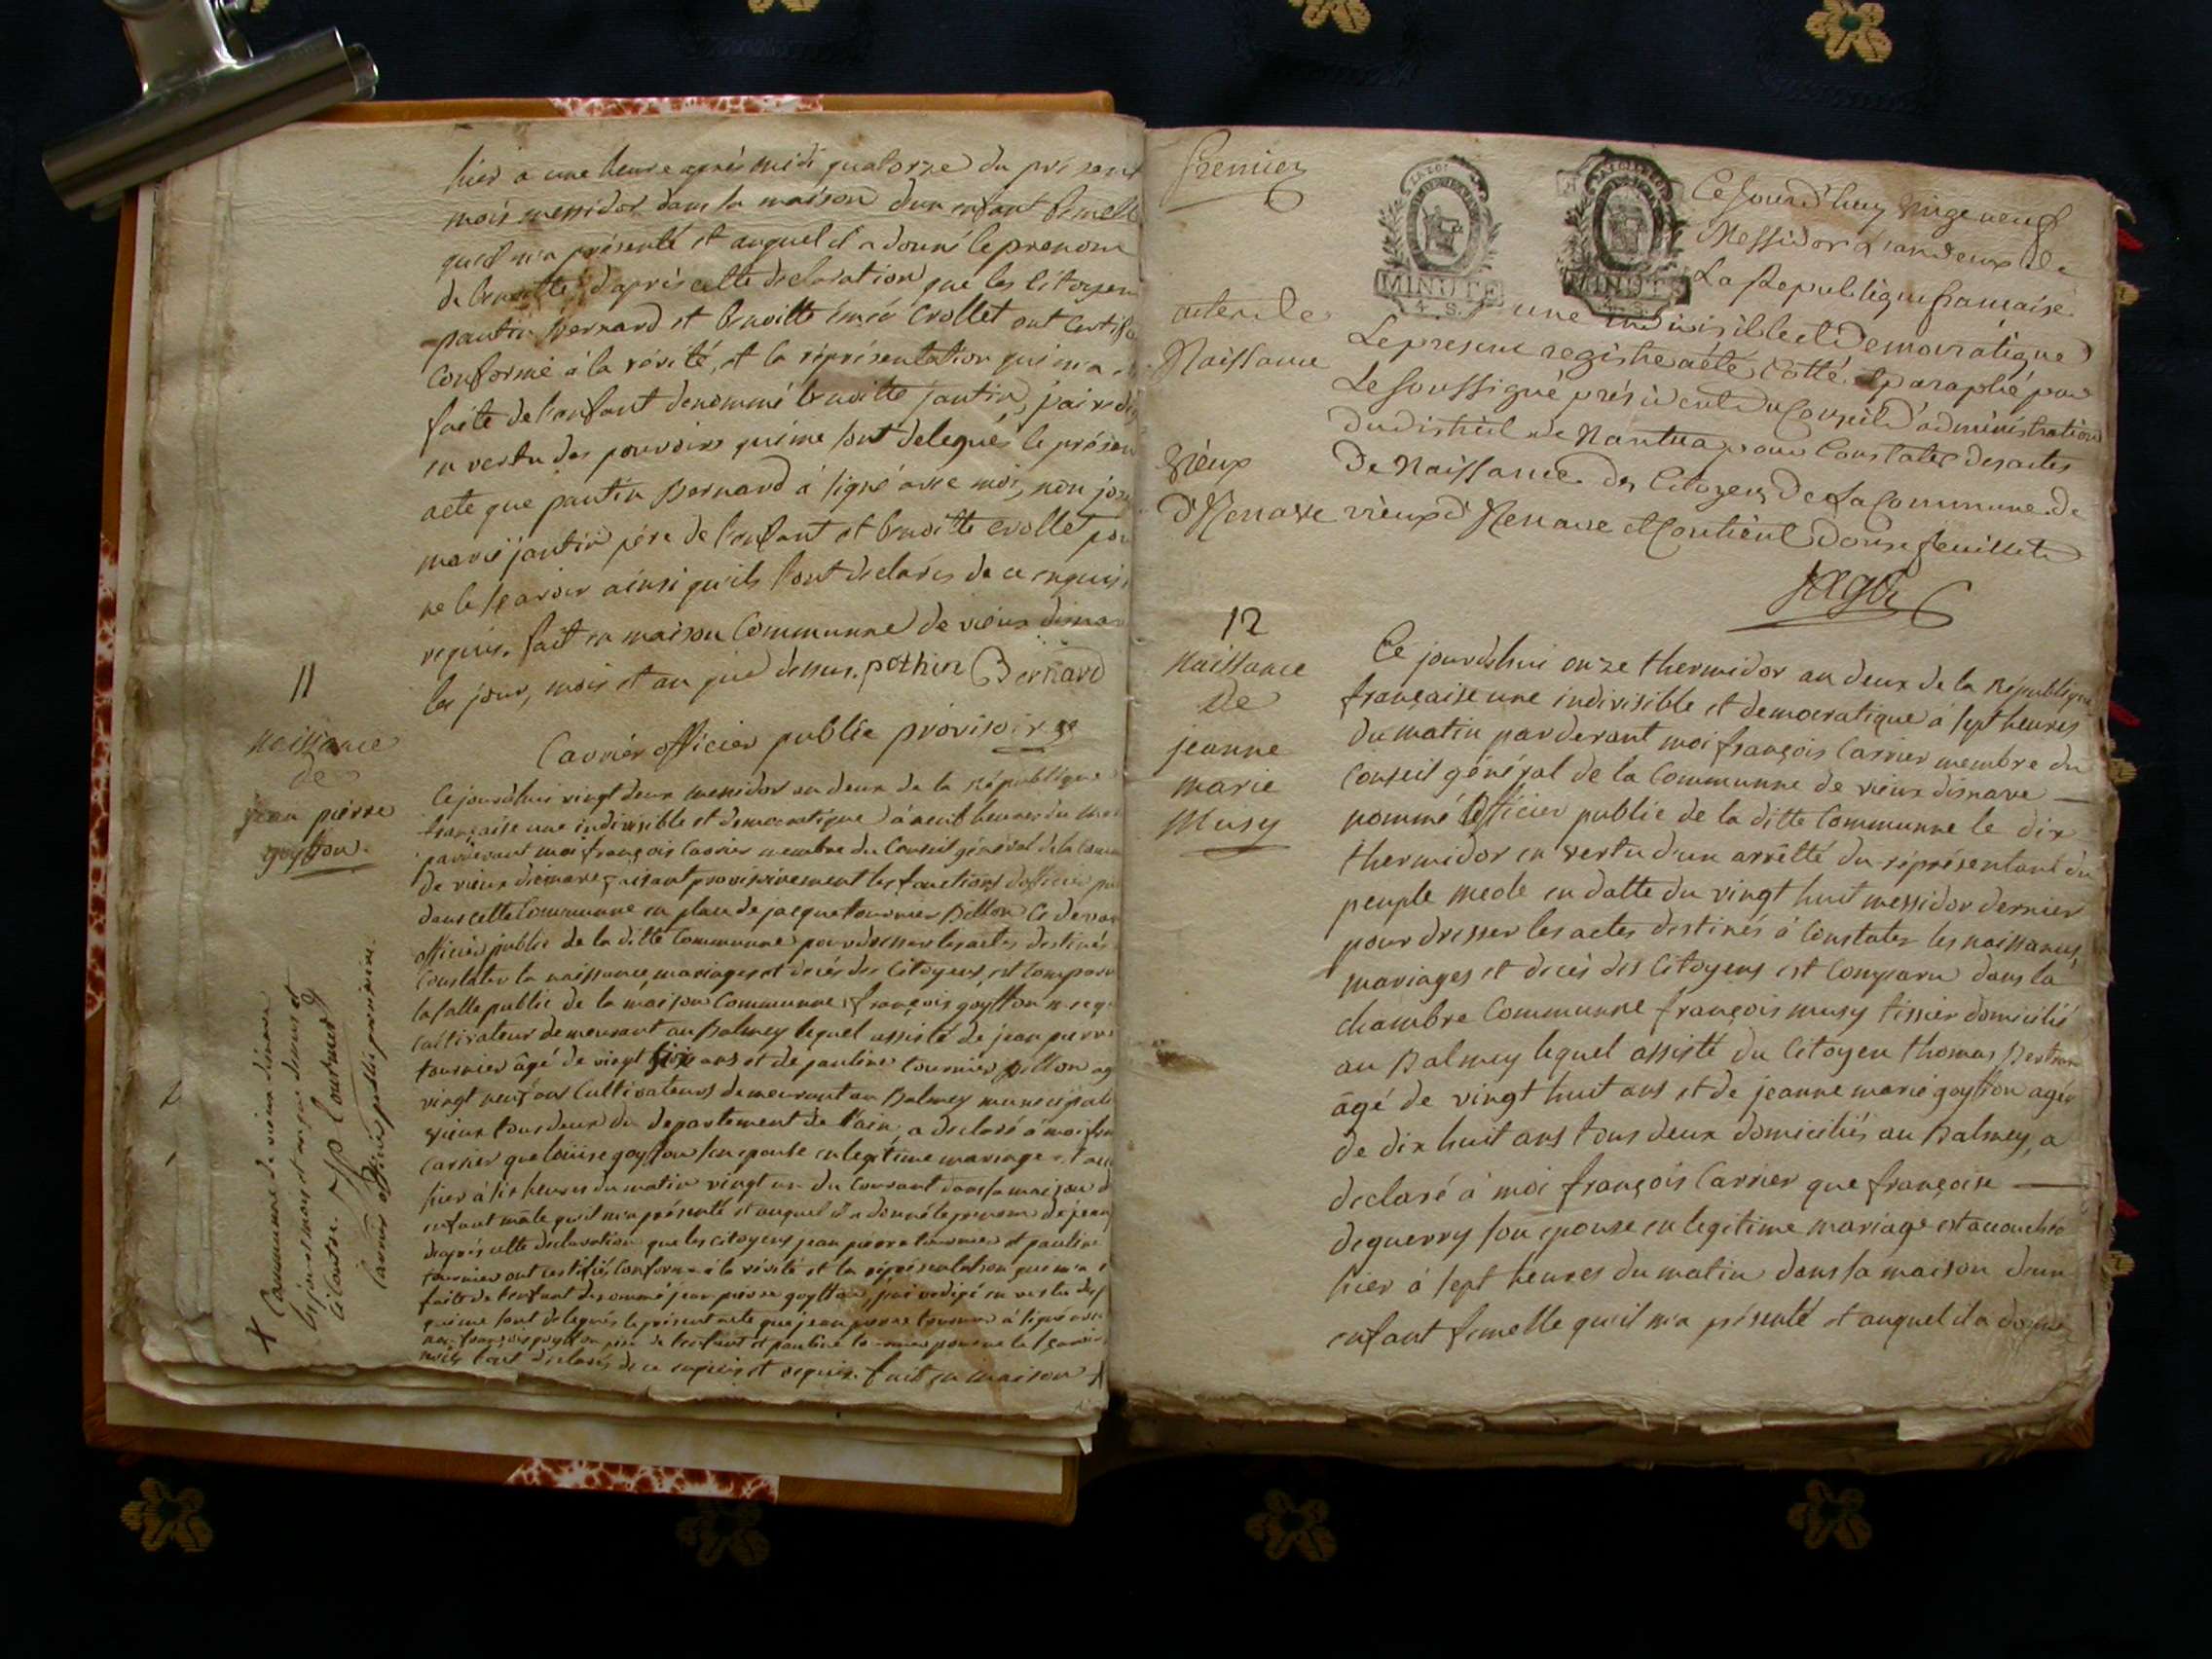 hier à une heure après midi quatorze du présent
mois messidor dans la maison d'un enfant femelle
qu'il m'a présenté et auquel il a donné le prenom
de benoitte, d'après cette déclaration que les citoyens
pautin bernard et benoitte émée Crollet ont certifié
conforme à la vérité, et la réprésentation qui m'a été
faite de l'enfant denommé benoitte jantin, j'ai rédigé
en vertu des pouvoirs qui me sont delegués le présent
acte que pautin Bernard à signé avec moi, non
marie jantin père de l'enfant et benoitte crollet pour
ne le sçavoir ainsi qu'ils l'ont declarés de ce enquis et
requis. fait en maison Communne de vieux disnave
les jour, mois et an que dessus. pothin Bernard
Carrier officier public provisoire
11
naissance
de
jean pierre
goytton.
Cejourdhui vingt deux messidor an deux de la République
française une indivisible et democratique à neuf heures du matin
pardevant moi françois Carrier membre du Conseil général de la Commune
de vieux disnave faisant provisoirement les fonctions d'officier public
dans cette Communne en place de jacque tournier Billon ci devant
officier public de la ditte Communne pour dresser les actes destinés
Constater la naissance, mariages et décés des Citoyens, est comparu
la salle public de la maison Communne françois goytton
Cultivateur demeurant au Balmey lequel assisté de jean pierre
tournier âgé de vingt ans et de pauline tournier Billon agé
vingt neuf ans Cultivateurs demeurant au Balmey municipalité
vieux tous deux du departement de l'ain, a declaré à moi
Carrier que louise goytton son epouse en legitime mariage est
hier à six heures du matin vingt un du Courant dans sa maison d'un
enfant mâle qu'il m'a présenté et auquel il a donné le prenom de jean
d'après cette declaration que les citoyens jean pierre tournier et pauline
tournier ont certifiés conforme à la vérité et la réprésentation que m'a été
faite de l'enfant denommé jean pierre goytton, j'ai redigé en vertu des
qui me sont delegués le présent acte que jean pierre tournier à signé avec
non françois goytton père de l'enfant et pauline tournier pour ne le sçavoir
l'ont declarés de ce enquis et requis. fait en maison X
X Communne de vieux disnave
les jour et mois et an que dessus et
ci contre. J p tournier
Carrier officier public provisoire
Premier
MINUTE
4. S.
MINUTE
4. S.
Ce Jourd'huy vingt neuf
Messidor L'an deux de
La Republique française
une indivisible et Democratique
acte de
Naissance
Le present registre a été Cotté et paraphé par
Le Soussigné président du Conseil d'administration
du district de Nantua pour Constater des actes
De Naissance des Citoyens De La Commune de
Vieux
D'Yenave
vieux d'Yenave et Contient Douze feuillets
12
naissance
De
jeanne
marie
Musy
Ce jourdhui onze thermidor an deux de la République
française une indivisible et democratique à sept heures
du matin pardevant moi françois Carrier membre du
Conseil général de la Communne de vieux disnave
nommé Officier public de la ditte Communne le dix
thermidor en vertu d'un arrêtté du réprésentant du
peuple meole en datte du vingt huit messidor dernier
pour dresser les actes destinés à Constater les naissances,
mariages et decès des Citoyens est Comparu dans la
chambre Communne françois musy tissier domicilié
au Balmey lequel assisté du Citoyen thomas
âgé de vingt huit ans et de jeanne marie goytton agée
de dix huit ans tous deux domiciliés au Balmey, a
declaré à moi françois Carrier que françoise
deguerry son epouse en legitime mariage est accouchée
hier à sept heures du matin dans sa maison d'un
enfant femelle qu'il m'a présenté et auquel il a donné